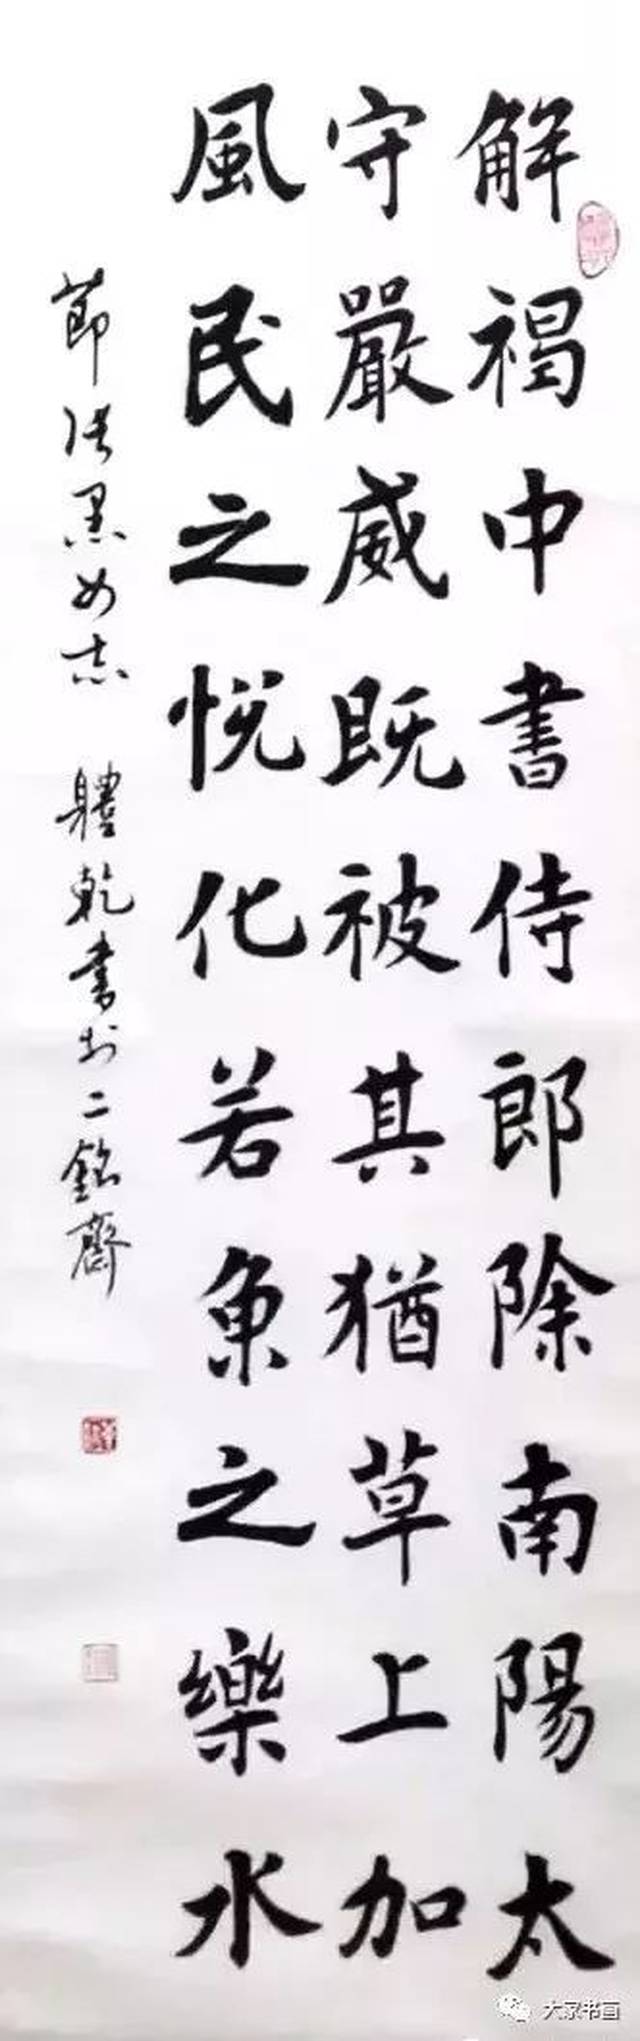 解褐中書侍郎除南陽太
守嚴威既被其猶草上加
風民之悅化若魚之樂水
節張黑女志 體乾書於二銘齋
大家书画